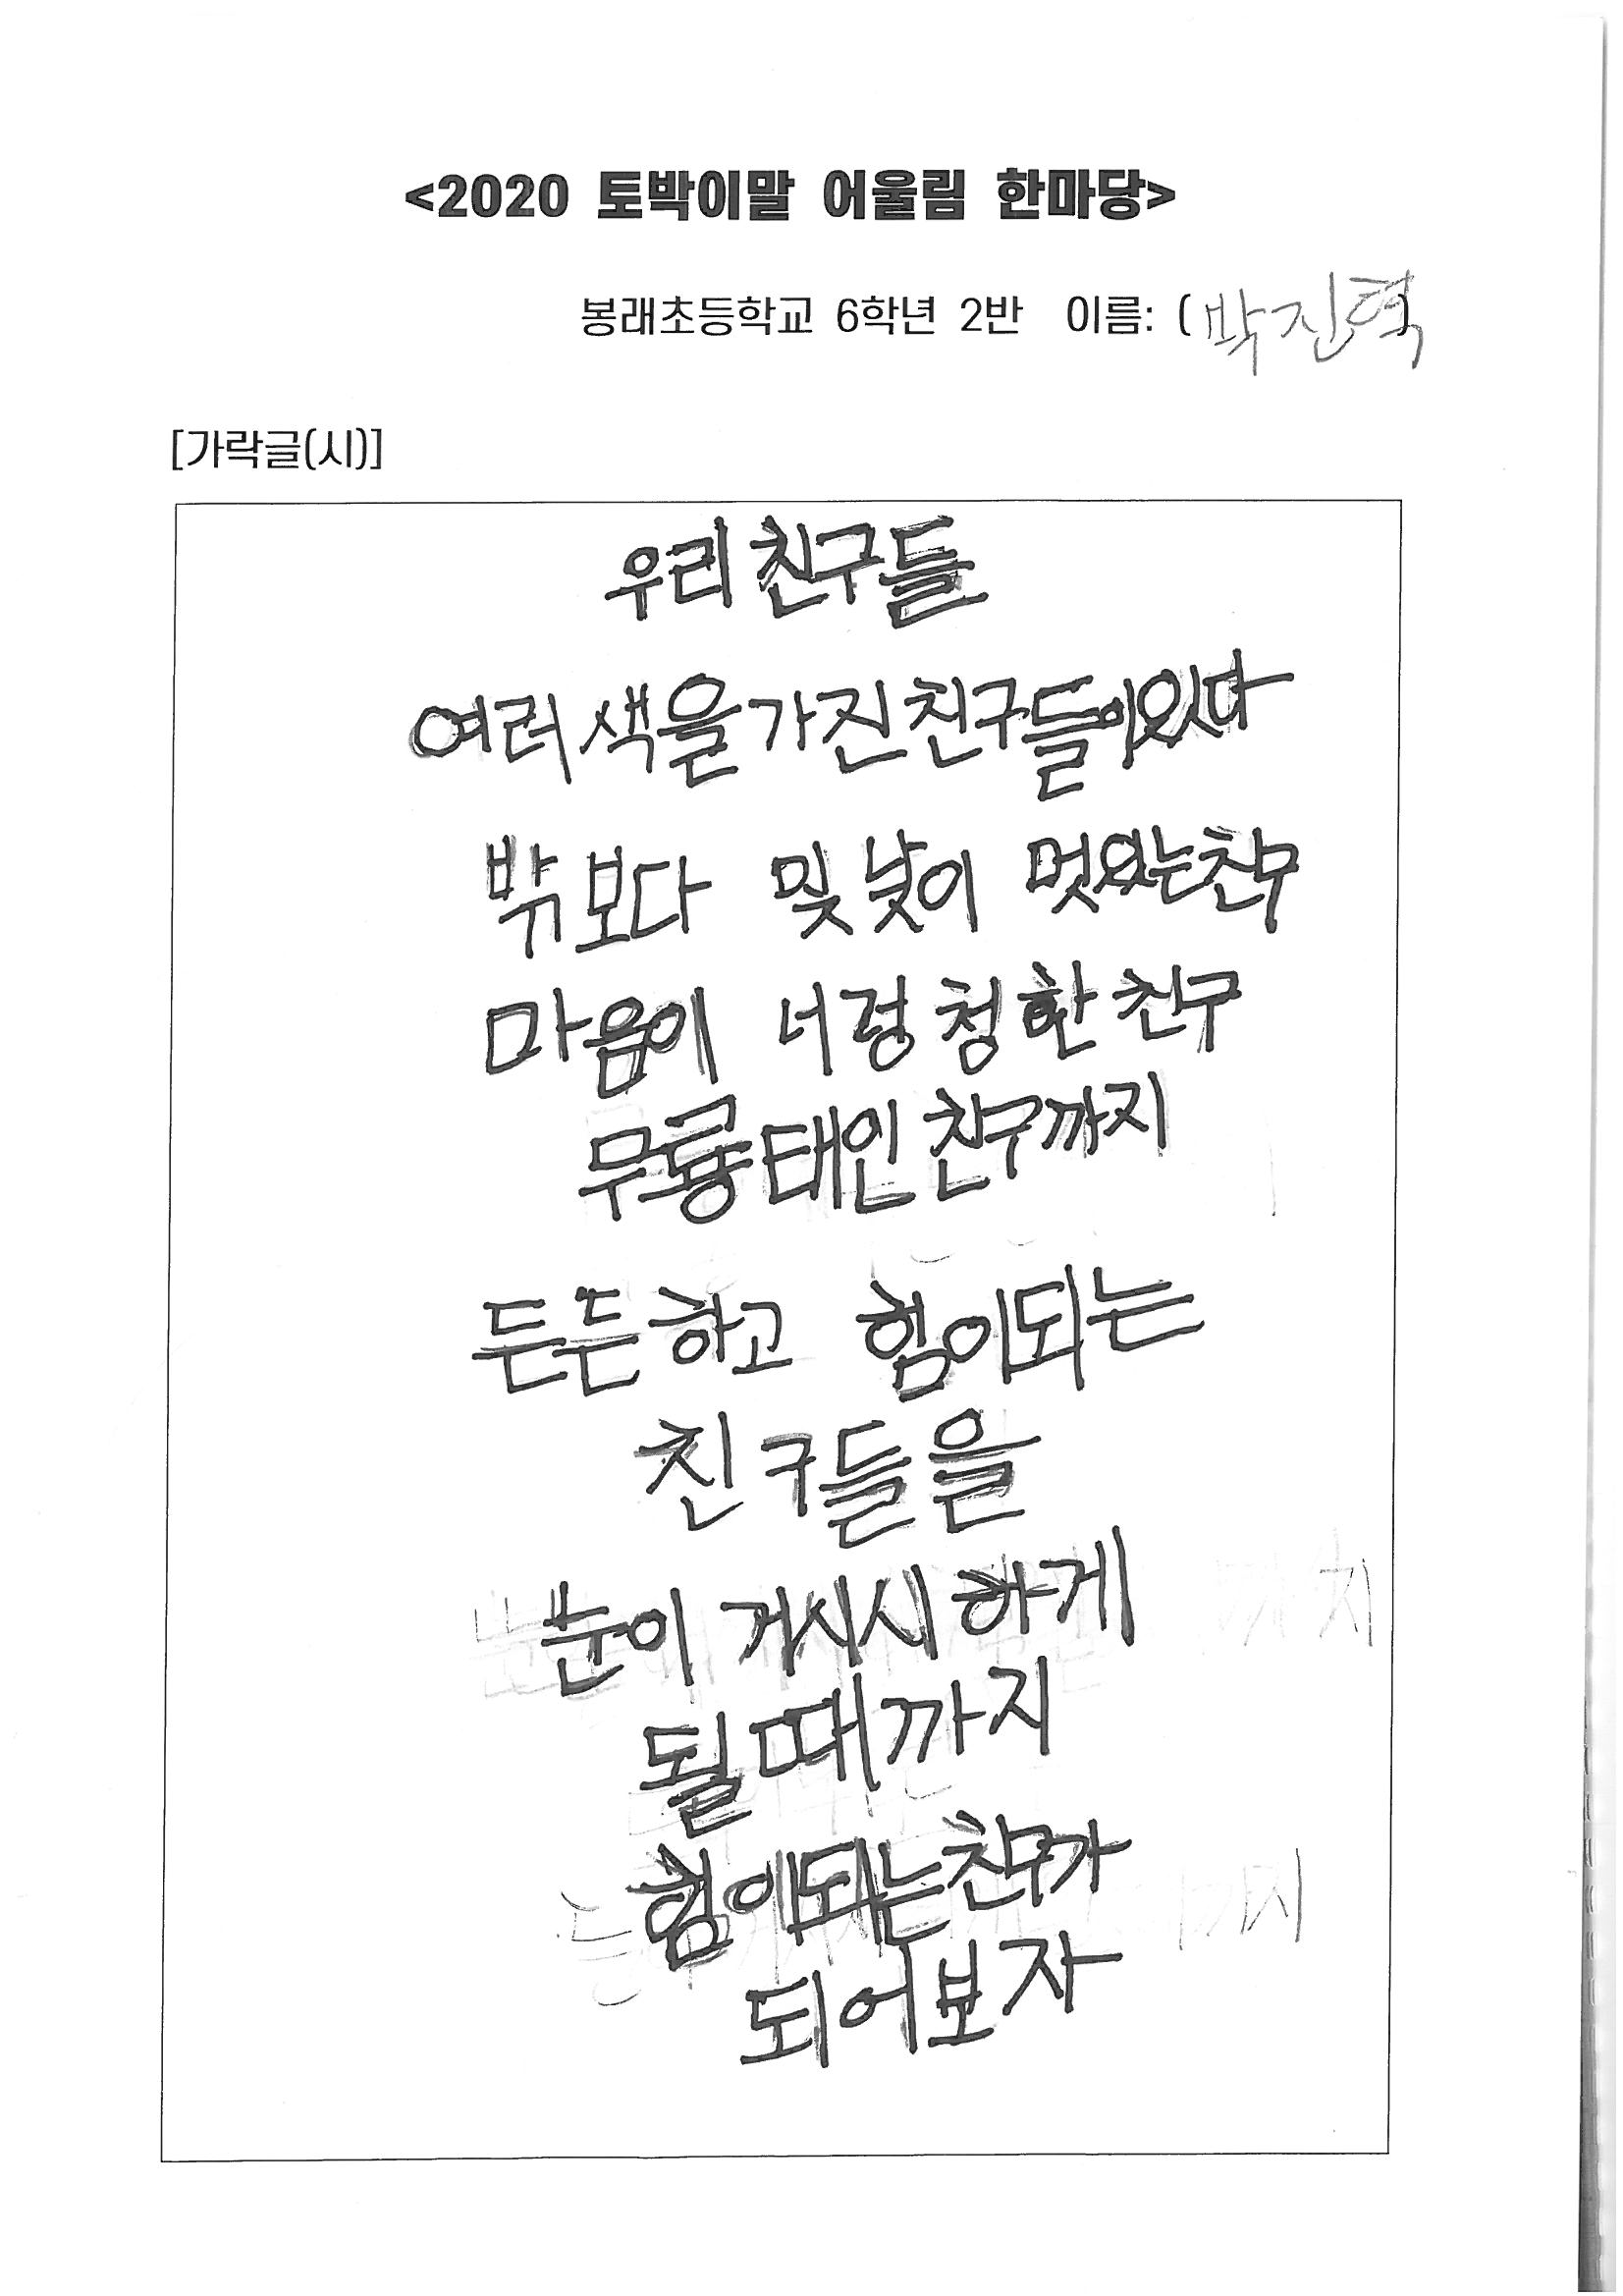 <2020 토박이말 어울림 한마당>
봉래초등학교 6학년 2반 이름: (박진혁)
[가락글(시)]
우리 친구들
여러 색을 가진 친구들이 있다
밖보다 밎낯이 멋있는 친구
마음이 너렁청한 친구
무룡태인 친구까지
든든하고 힘이되는
친구들을
눈이 가시시하게
될때까지
힘이되는 친구가
되어보자